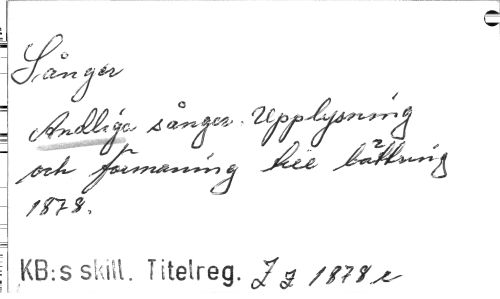 Sånger
Andliga sånger. Upplysning
och förmaning till bättring
1878.
KB:s skill. Titelreg. Zz 1878 e